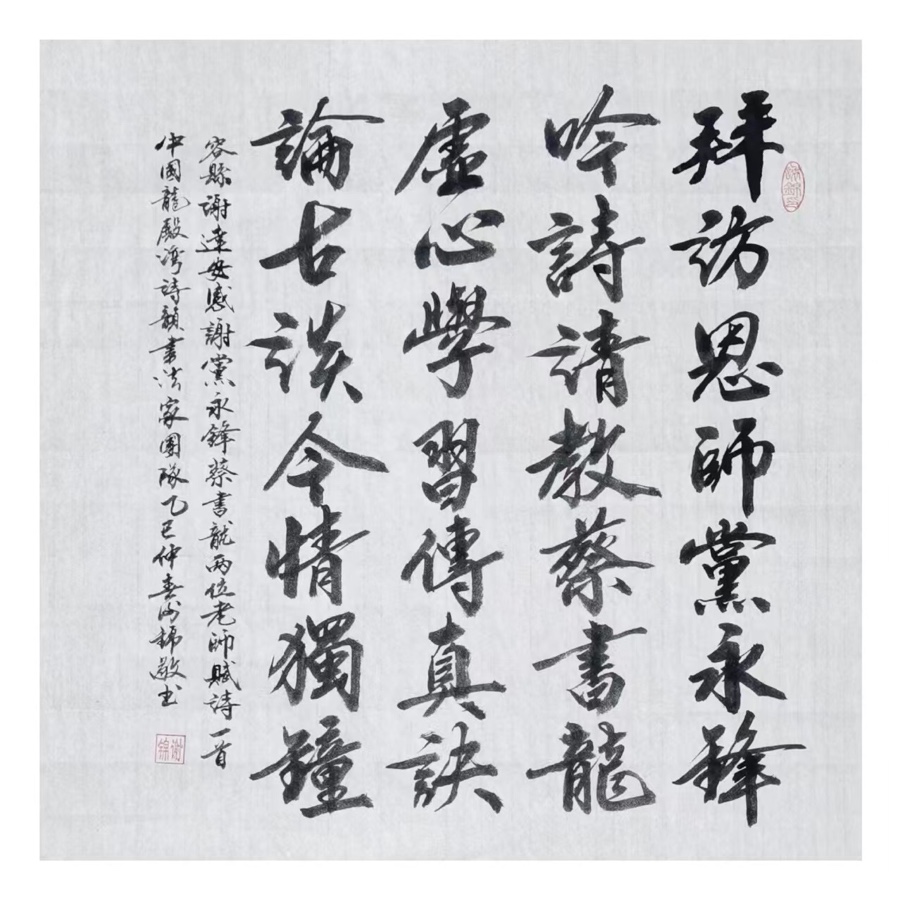 拜訪恩師黨永鋒
吟詩請教蔡書龍
虛心學習傳真訣
論古談今情獨鐘
容縣謝達安感謝黨永鋒蔡書龍兩位老師賦詩一首
中國龍殿灣詩韻書法家團隊乙巳仲春謝錦敬书